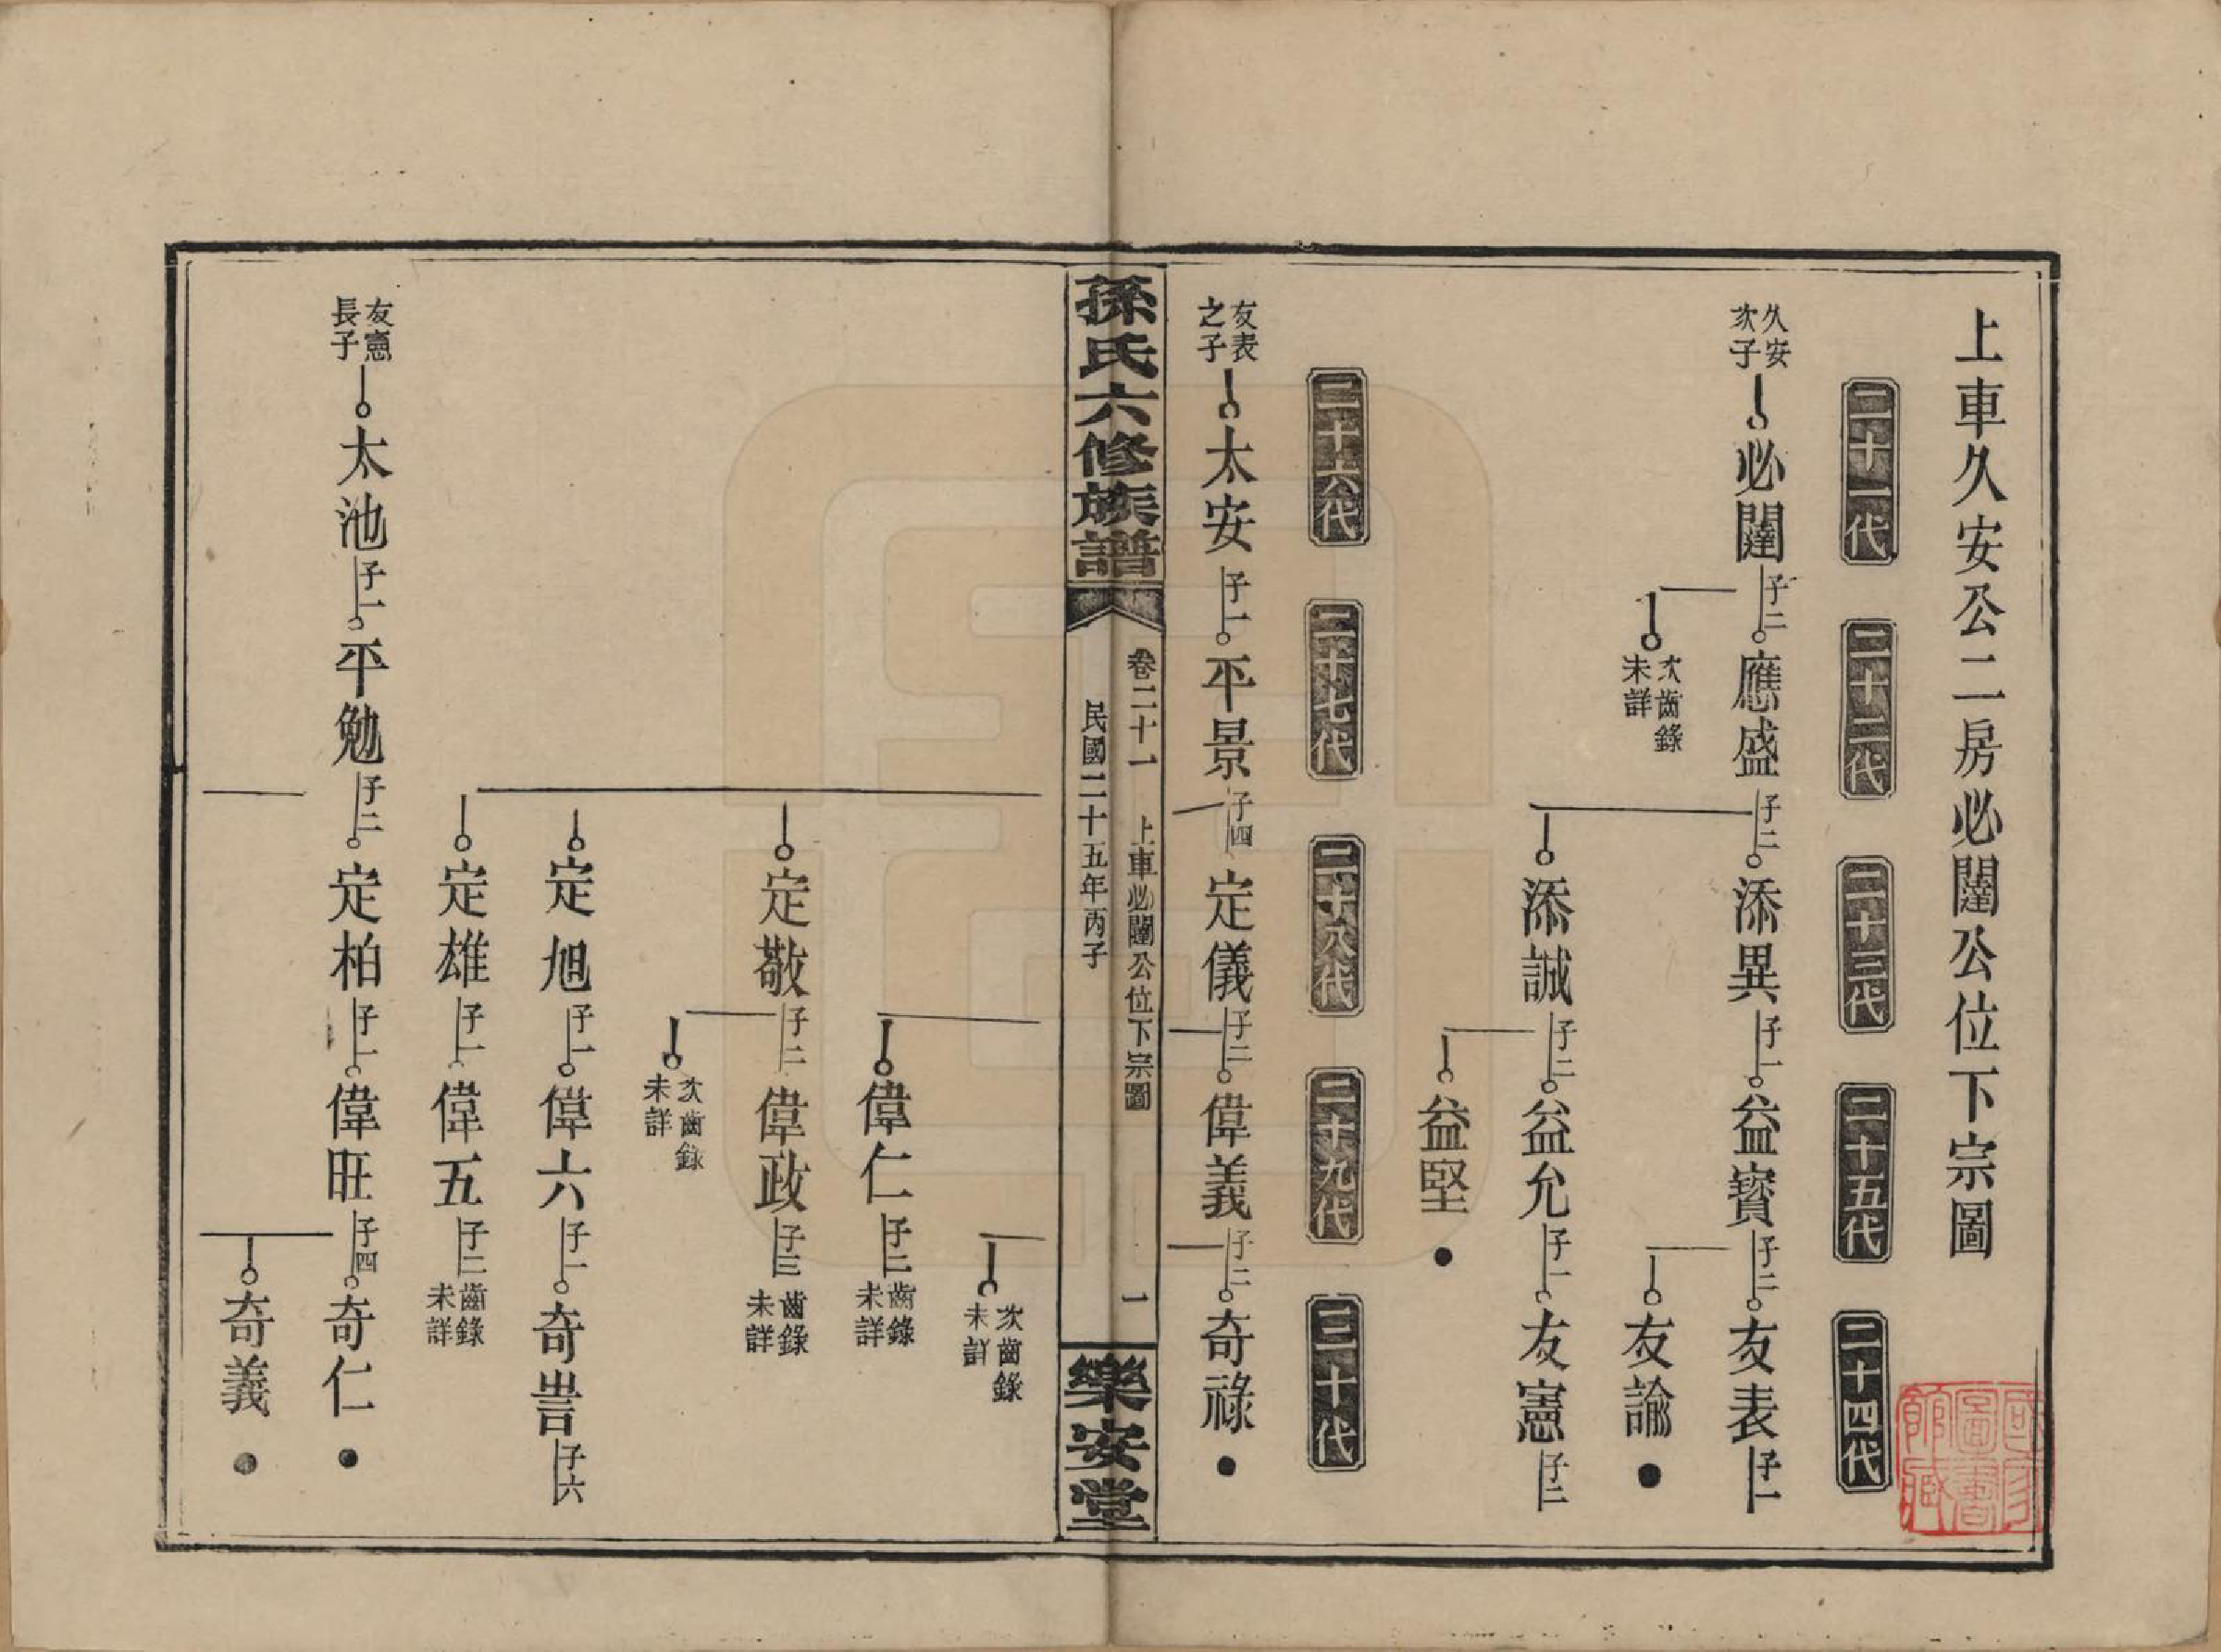 上車久安公二房必闥公位下宗圖
二十一代
二十二代
二十三代
二十五代
二十四代
久安次子
必闥子二應盛子二添異子一益寶子二友表子一
次齒錄未詳
友諭
添誠子二益允子一友憲子二
益堅
二十六代
二十七代
二十八代
二十九代
三十代
友表之子
太安子一平景子四定儀子二偉義子二奇祿
孫氏六修族譜
卷二十一
上車必闥公位下宗圖
一
民國二十五年丙子
樂安堂
次齒錄未詳
偉仁子二齒錄未詳
定敬子二偉政子三齒錄未詳
次齒錄未詳
定旭子一偉六子一奇訔子六
定雄子一偉五子二齒錄未詳
友憲長子
太池子一平勉子二定柏子一偉旺子四奇仁
奇義